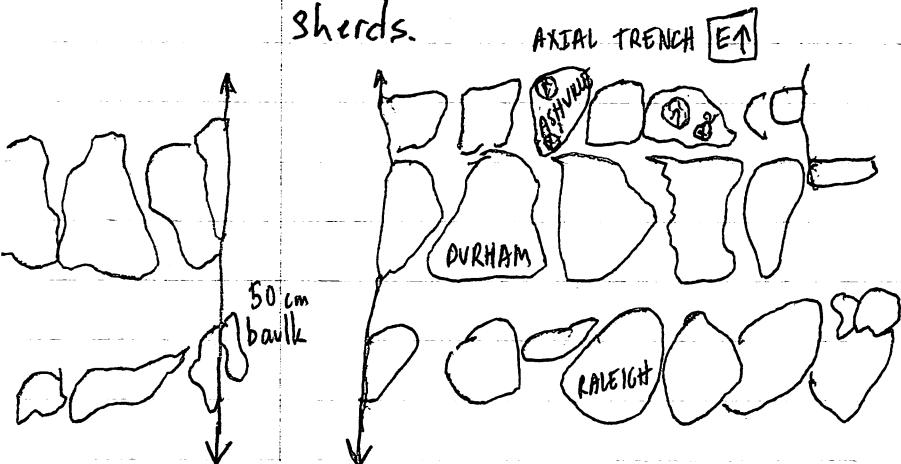 Sherds.
AXIAL TRENCH E↑
ASHVILLE
DURHAM
50 cm
baulk
RALEIGH